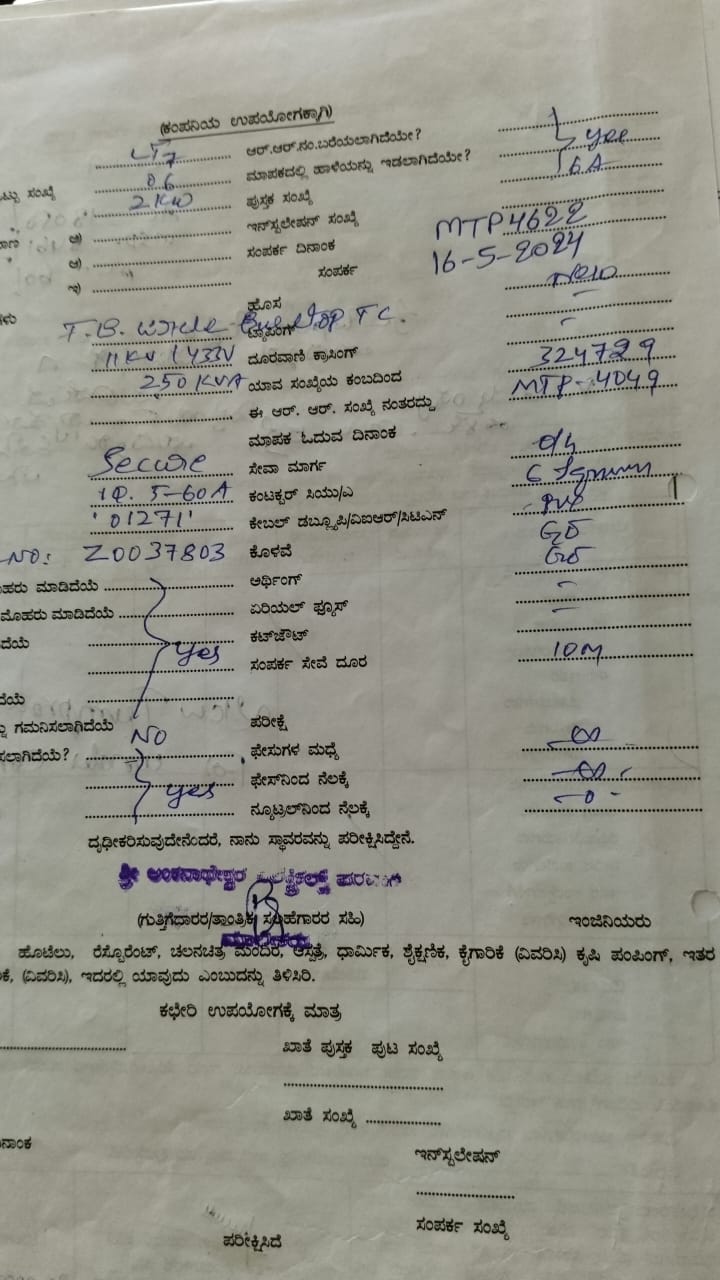 (ಕಂಪನಿಯ ಉಪಯೋಗಕ್ಕಾಗಿ)
LT7 ಆರ್.ಆರ್.ನಂ.ಬರೆಯಲಾಗಿದೆಯೇ?
ಸಂಖ್ಯೆ 06 ಮಾಪಕದಲ್ಲಿ ಹಾಳೆಯನ್ನು ಇಡಲಾಗಿದೆಯೇ? yes
2 KW ಪುಸ್ತಕ ಸಂಖ್ಯೆ 6A
ಅ) ಇನ್‌ಸ್ಟಲೇಷನ್ ಸಂಖ್ಯೆ MTP4622
ಆ) ಸಂಪರ್ಕ ದಿನಾಂಕ 16-5-2024
ಇ) ಸಂಪರ್ಕ
ಹೊಸ New
T.B. TC. ಟ್ಯಾಪಿಂಗ್ -
11KV / 433V ದೂರವಾಣಿ ಕ್ರಾಸಿಂಗ್ -
250 KVA ಯಾವ ಸಂಖ್ಯೆಯ ಕಂಬದಿಂದ 324729
ಈ ಆರ್. ಆರ್. ಸಂಖ್ಯೆ ನಂತರದ್ದು MTP-4049
ಮಾಪಕ ಓದುವ ದಿನಾಂಕ
Secure ಸೇವಾ ಮಾರ್ಗ O/H
1Φ. 5-60A ಕಂಟಕ್ಟರ್ ಸಿಯು/ಎ
'01271' ಕೇಬಲ್ ಡಬ್ಲ್ಯೂಪಿ/ವಿಐಆರ್/ಸಿಟಿಎನ್ PVC
NO: Z0037803 ಕೊಳವೆ
ಮೊಹರು ಮಾಡಿದೆಯೆ ಆರ್ಥಿಂಗ್
ಮೊಹರು ಮಾಡಿದೆಯೆ ಏರಿಯಲ್ ಫ್ಯೂಸ್ -
ದೆಯೆ ಕಟ್‌ಔಟ್ -
yes ಸಂಪರ್ಕ ಸೇವೆ ದೂರ 10M
ದೆಯೆ
ಗಮನಿಸಲಾಗಿದೆಯೆ NO ಪರೀಕ್ಷೆ
ಸಲಾಗಿದೆಯೆ? ಫೇಸುಗಳ ಮಧ್ಯೆ -∞
yes ಫೇಸ್‌ನಿಂದ ನೆಲಕ್ಕೆ -∞-
ನ್ಯೂಟ್ರಲ್‌ನಿಂದ ನೆಲಕ್ಕೆ -0-
ದೃಢೀಕರಿಸುವುದೇನೆಂದರೆ, ನಾನು ಸ್ಥಾವರವನ್ನು ಪರೀಕ್ಷಿಸಿದ್ದೇನೆ.
ಶ್ರೀ ಅಂಕನಾಥೇಶ್ವರ
(ಗುತ್ತಿಗೆದಾರರ/ತಾಂತ್ರಿಕ ಸಲಹೆಗಾರರ ಸಹಿ) ಇಂಜಿನಿಯರು
ಹೊಟೆಲು, ರೆಸ್ಟೊರೆಂಟ್, ಚಲನಚಿತ್ರ ಮಂದಿರ, ಆಸ್ಪತ್ರೆ, ಧಾರ್ಮಿಕ, ಶೈಕ್ಷಣಿಕ, ಕೈಗಾರಿಕೆ (ವಿವರಿಸಿ) ಕೃಷಿ ಪಂಪಿಂಗ್, ಇತರ
ಕೆ, (ವಿವರಿಸಿ), ಇದರಲ್ಲಿ ಯಾವುದು ಎಂಬುದನ್ನು ತಿಳಿಸಿರಿ.
ಕಛೇರಿ ಉಪಯೋಗಕ್ಕೆ ಮಾತ್ರ
ಖಾತೆ ಪುಸ್ತಕ ಪುಟ ಸಂಖ್ಯೆ
ಖಾತೆ ಸಂಖ್ಯೆ
ನಾಂಕ
ಇನ್‌ಸ್ಟಲೇಷನ್
ಸಂಪರ್ಕ ಸಂಖ್ಯೆ
ಪರೀಕ್ಷಿಸಿದೆ